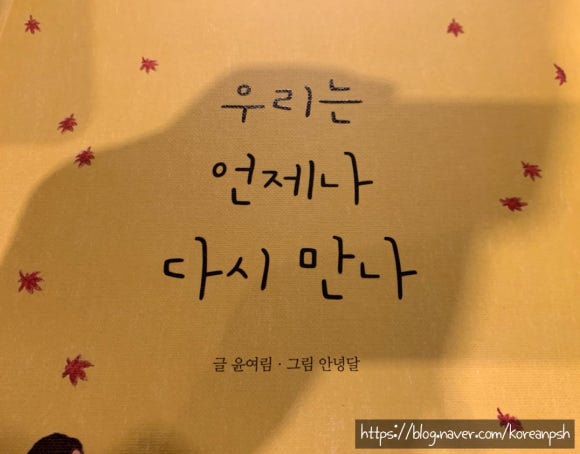 우리는
언제나
다시 만나
글 윤여림 · 그림 안녕달
https://blog.naver.com/koreanpsh